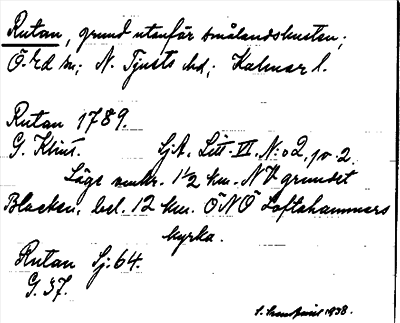 Rutan, grund utanför smålandskusten;
Ö. Ed sn; N. Tjusts hd; Kalmar l.
Rutan 1789.
G. Klint. Sj.A. Litt. VI, N:o 2, pv. 2.
Läge omkr. 1 1/2 km. NV grundet
Blacken, bel. 12 km. ONO Loftahammars
kyrka.
Rutan Sj. 64.
G. 37.
1938.